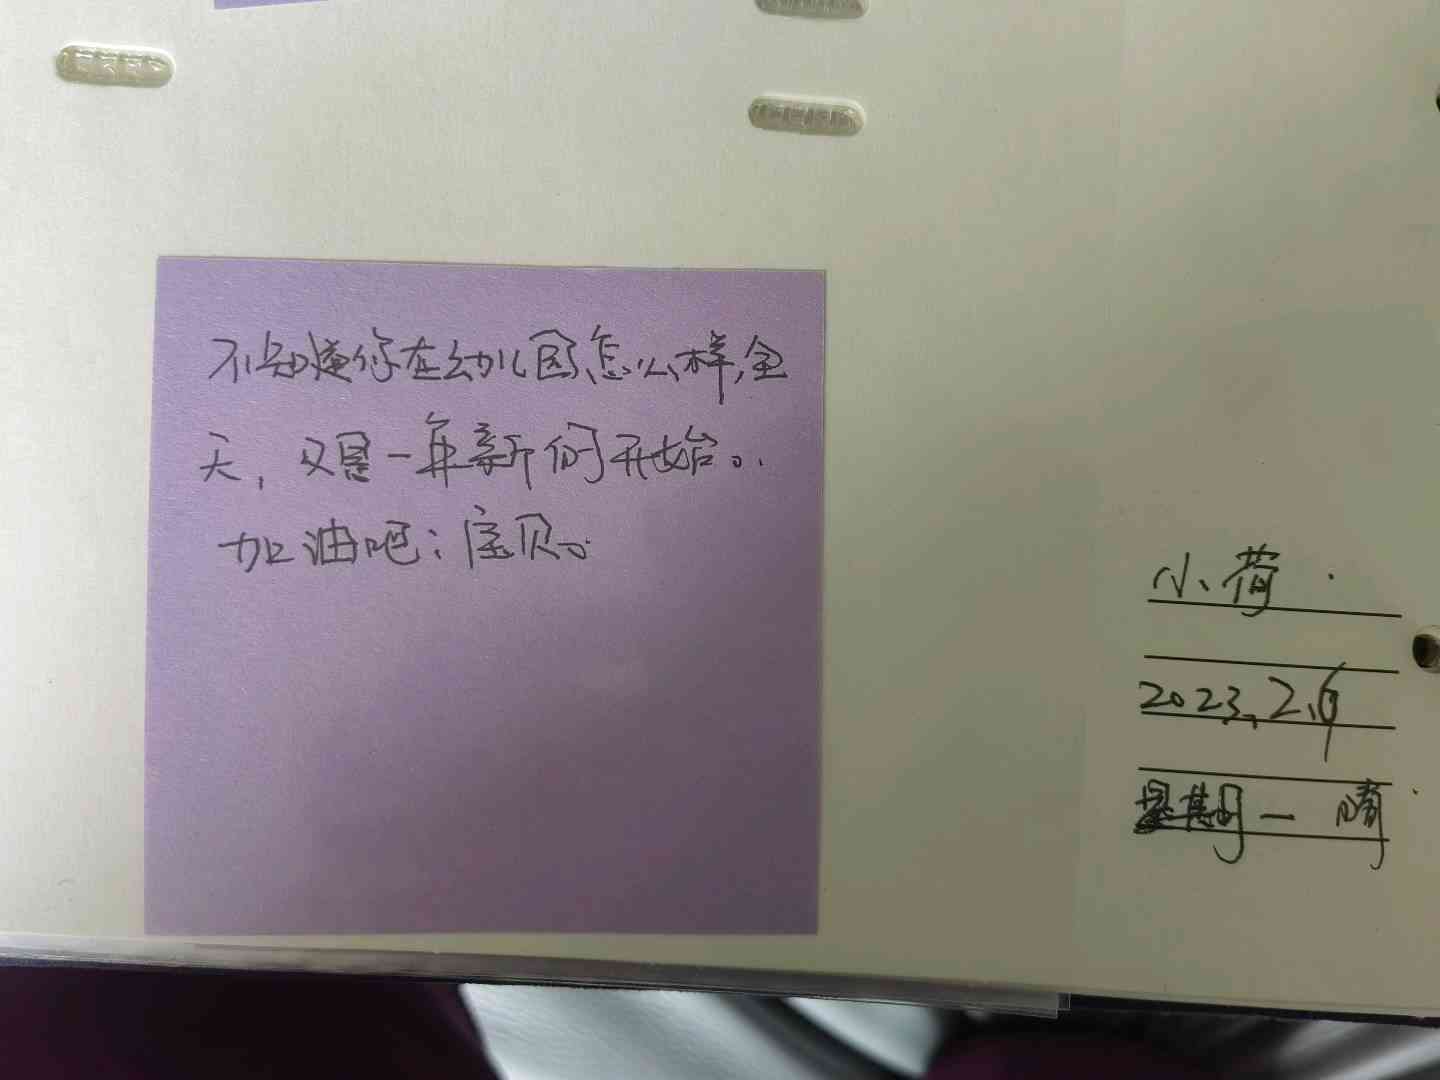 不知道你在幼儿园怎么样,今
天,又是一年新的开始。
加油吧:宝贝。
小荷
2023.2.6
星期一 晴